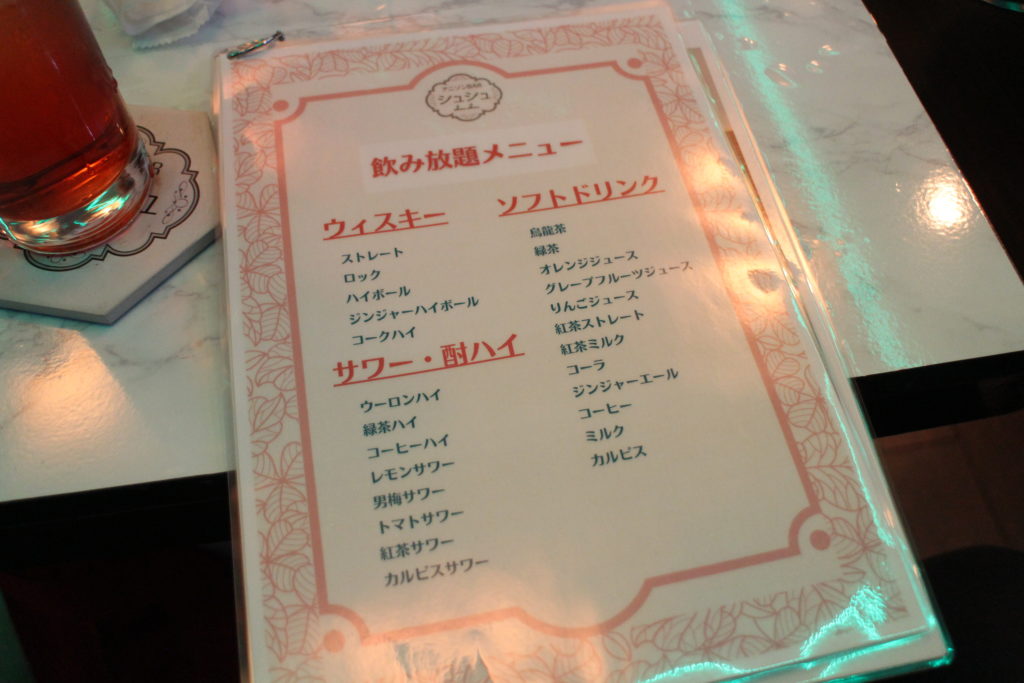 アニソンBAR
シュシュ
飲み放題メニュー
ウィスキー
ストレート
ロック
ハイボール
ジンジャーハイボール
コークハイ
サワー・酎ハイ
ウーロンハイ
緑茶ハイ
コーヒーハイ
レモンサワー
男梅サワー
トマトサワー
紅茶サワー
カルピスサワー
ソフトドリンク
烏龍茶
緑茶
オレンジジュース
グレープフルーツジュース
りんごジュース
紅茶ストレート
紅茶ミルク
コーラ
ジンジャーエール
コーヒー
ミルク
カルピス